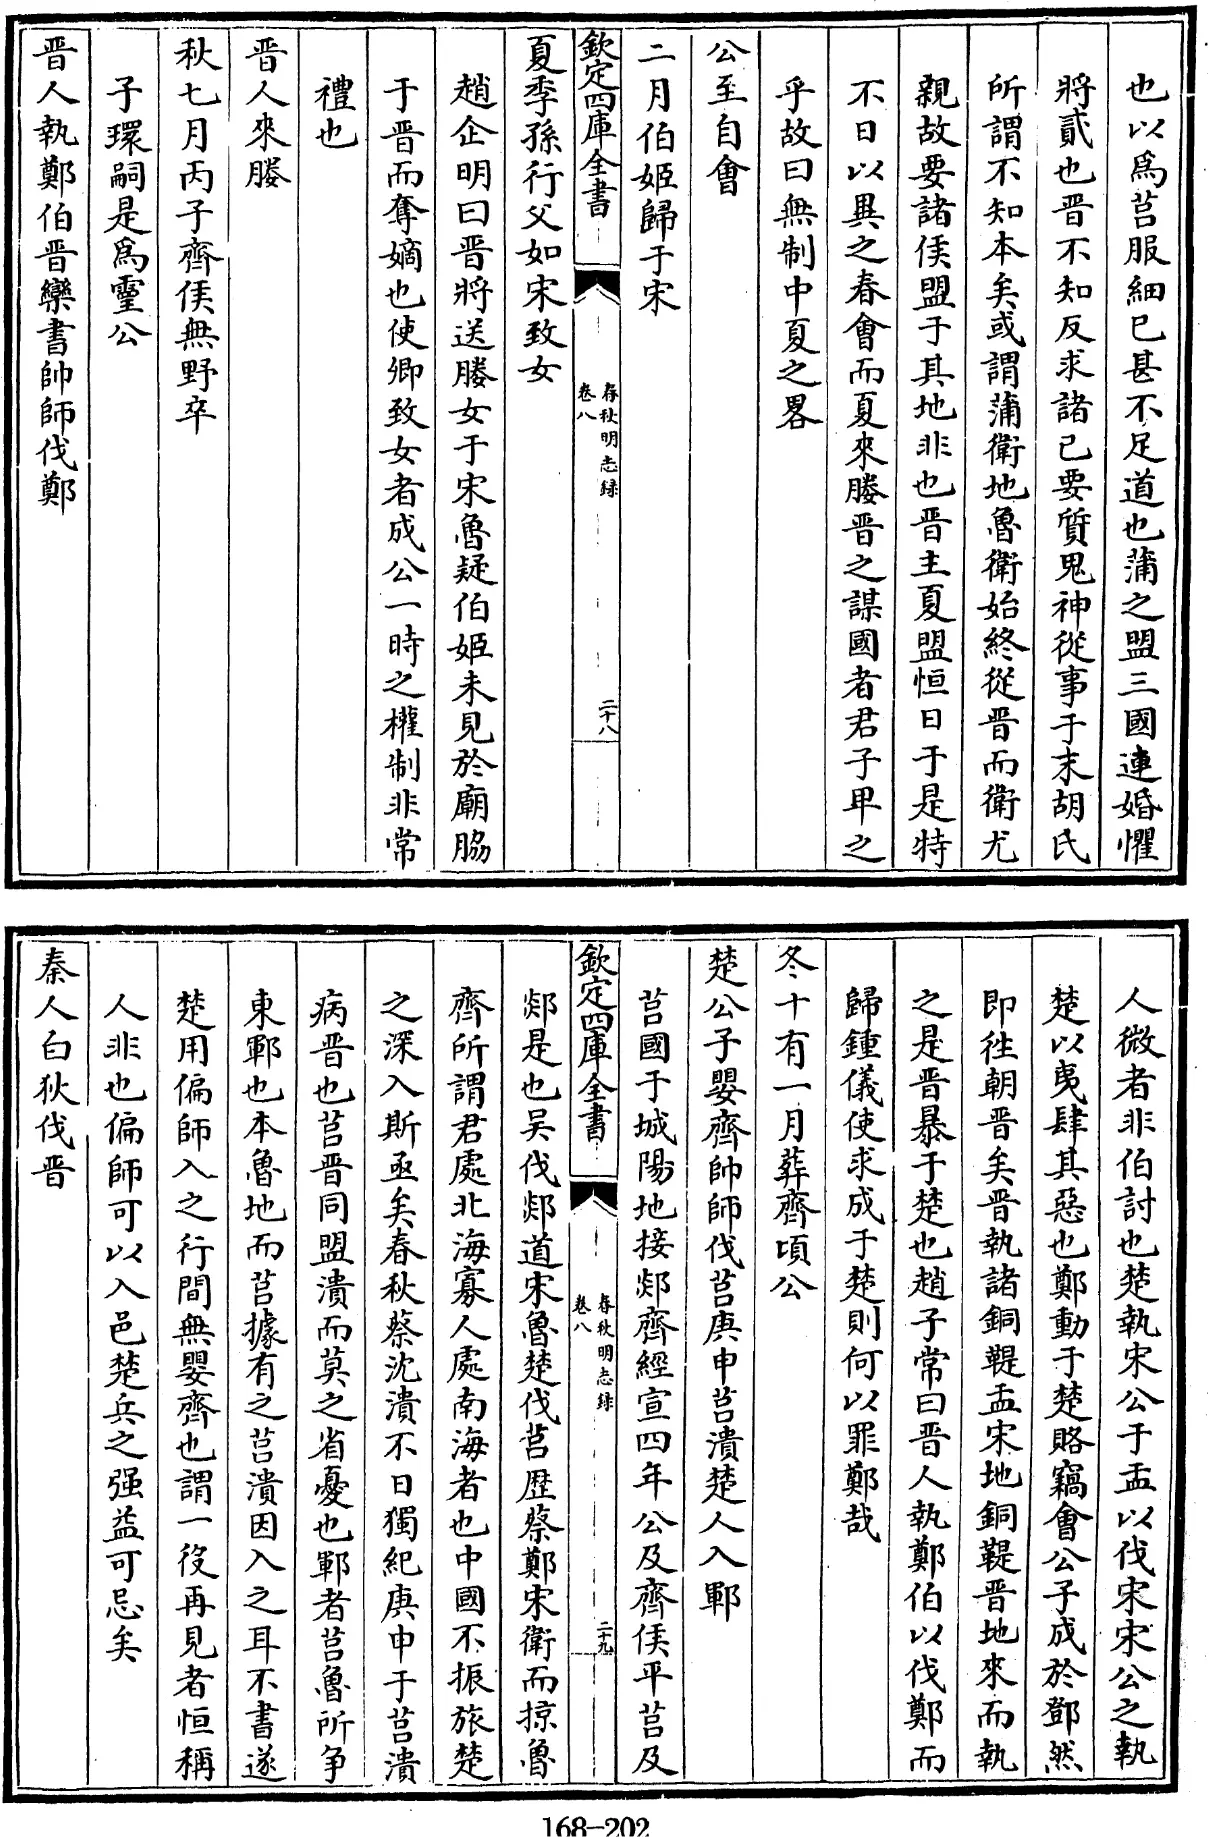 也以爲莒服細已甚不足道也蒲之盟三國連婚懼
將貳也晋不知反求諸已要質鬼神從事于末胡氏
所謂不知本矣或謂蒲衛地魯衛始終從晋而衛尤
親故要諸侯盟于其地非也晋主夏盟恒日于是特
不日以異之春會而夏來媵晋之謀國者君子早之
乎故曰無制中夏之畧
公至自會
二月伯姬歸于宋
欽定四庫全書
春秋明志録
卷八
二十八
夏季孫行父如宋致女
趙企明曰晋將送媵女于宋魯疑伯姬未見於廟脇
于晋而奪嫡也使卿致女者成公一時之權制非常
禮也
晋人來媵
秋七月丙子齊侯無野卒
子環嗣是爲靈公
晋人執鄭伯晋欒書帥師伐鄭
人微者非伯討也楚執宋公于盂以伐宋宋公之執
楚以夷肆其惡也鄭動于楚賂竊會公子成於鄧然
即徃朝晋矣晋執諸銅鞮盂宋地銅鞮晋地來而執
之是晋暴于楚也趙子常曰晋人執鄭伯以伐鄭而
歸鍾儀使求成于楚則何以罪鄭哉
冬十有一月葬齊頃公
楚公子嬰齊帥師伐莒庚申莒潰楚人入鄆
莒國于城陽地接郯齊經宣四年公及齊侯平莒及
欽定四庫全書
春秋明志録
卷八
二十九
郯是也吴伐郯道宋魯楚伐莒歴蔡鄭宋衛而掠魯
齊所謂君處北海寡人處南海者也中國不振旅楚
之深入斯亟矣春秋蔡沈潰不日獨紀庚申于莒潰
病晋也莒晋同盟潰而莫之省憂也鄆者莒魯所争
東鄆也本魯地而莒據有之莒潰因入之耳不書遂
楚用偏師入之行間無嬰齊也謂一役再見者恒稱
人非也偏師可以入邑楚兵之强益可忌矣
秦人白狄伐晋
168-202